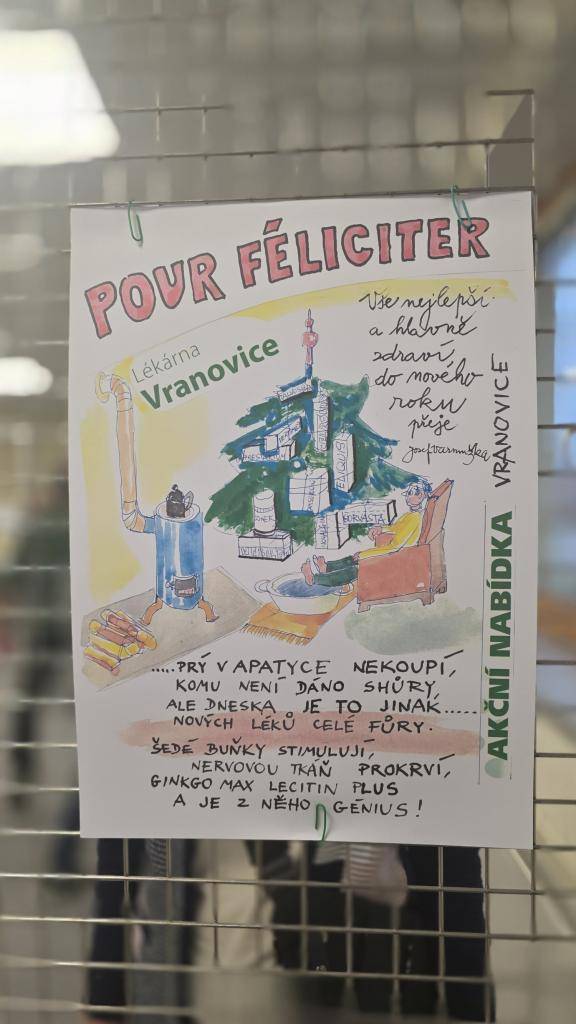 POUR FÉLICITER
Vše nejlepší
a hlavně
zdraví,
do nového
roku
přeje
Lékárna
Vranovice
ELIQUIS
TORVASTA
VRANOVICE
AKČNÍ NABÍDKA
.....PRÝ V APATYCE NEKOUPÍ,
KOMU NENÍ DÁNO SHŮRY,
ALE DNESKA JE TO JINAK.....
NOVÝCH LÉKŮ CELÉ FŮRY.
ŠEDÉ BUŇKY STIMULUJÍ,
NERVOVOU TKÁŇ PROKRVÍ,
GINKGO MAX LECITIN PLUS
A JE Z NĚHO GÉNIUS!